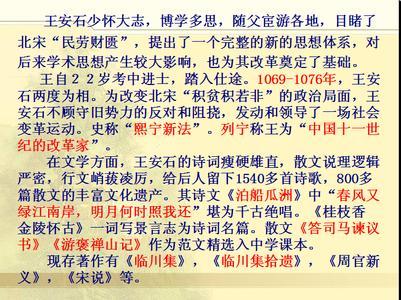 王安石少怀大志，博学多思，随父宦游各地，目睹了
北宋“民劳财匮”，提出了一个完整的新的思想体系，对
后来学术思想产生较大影响，也为其改革奠定了基础。
王自２２岁考中进士，踏入仕途。1069-1076年，王安
石两度为相。为改变北宋“积贫积若非”的政治局面，王安
石不顾守旧势力的反对和阻挠，发动和领导了一场社会
变革运动。史称“熙宁新法”。列宁称王为“中国十一世
纪的改革家”。
在文学方面，王安石的诗词瘦硬雄直，散文说理逻辑
严密，行文峭拔凌厉，给后人留下1540多首诗歌，800多
篇散文的丰富文化遗产。其诗文《泊船瓜洲》中“春风又
绿江南岸，明月何时照我还”堪为千古绝唱。《桂枝香
金陵怀古》一词写景言志为诗词名篇。散文《答司马谏议
书》《游褒禅山记》作为范文精选入中学课本。
现存著作有《临川集》，《临川集拾遗》，《周官新
义》，《宋说》等。